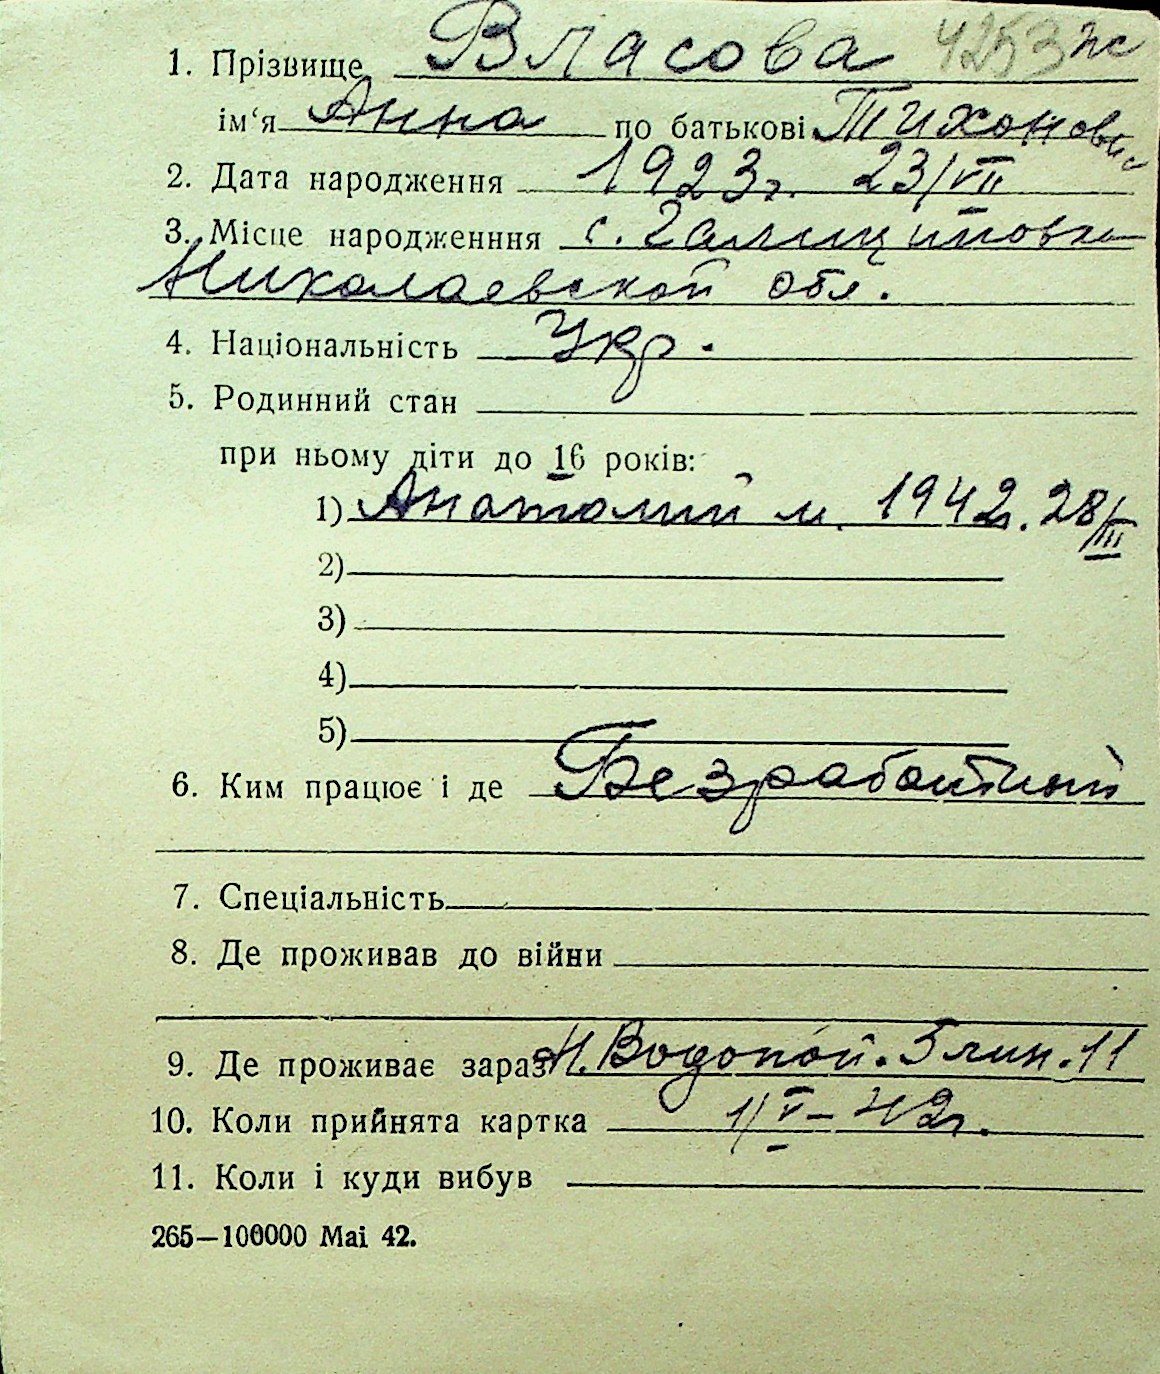 1. Прізвище Власова 4253 жс
ім‘я Анна по батькові Тихоновн
2. Дата народження 1923г. 23/VII
3. Місце народженння с. Галициновка
Николаевской обл.
4. Національність Укр.
5. Родинний стан
при ньому діти до 16 років:
1) Анатолий м. 1942г. 28/III
2)
3)
4)
5)
6. Ким працює і де Безработный
7. Спеціальність
8. Де проживав до війни
9. Де проживає зараз Н. Водопой. 5 лин. 11
10. Коли прийнята картка 1/V – 42г.
11. Коли і куди вибув
265—100000 Mai 42.